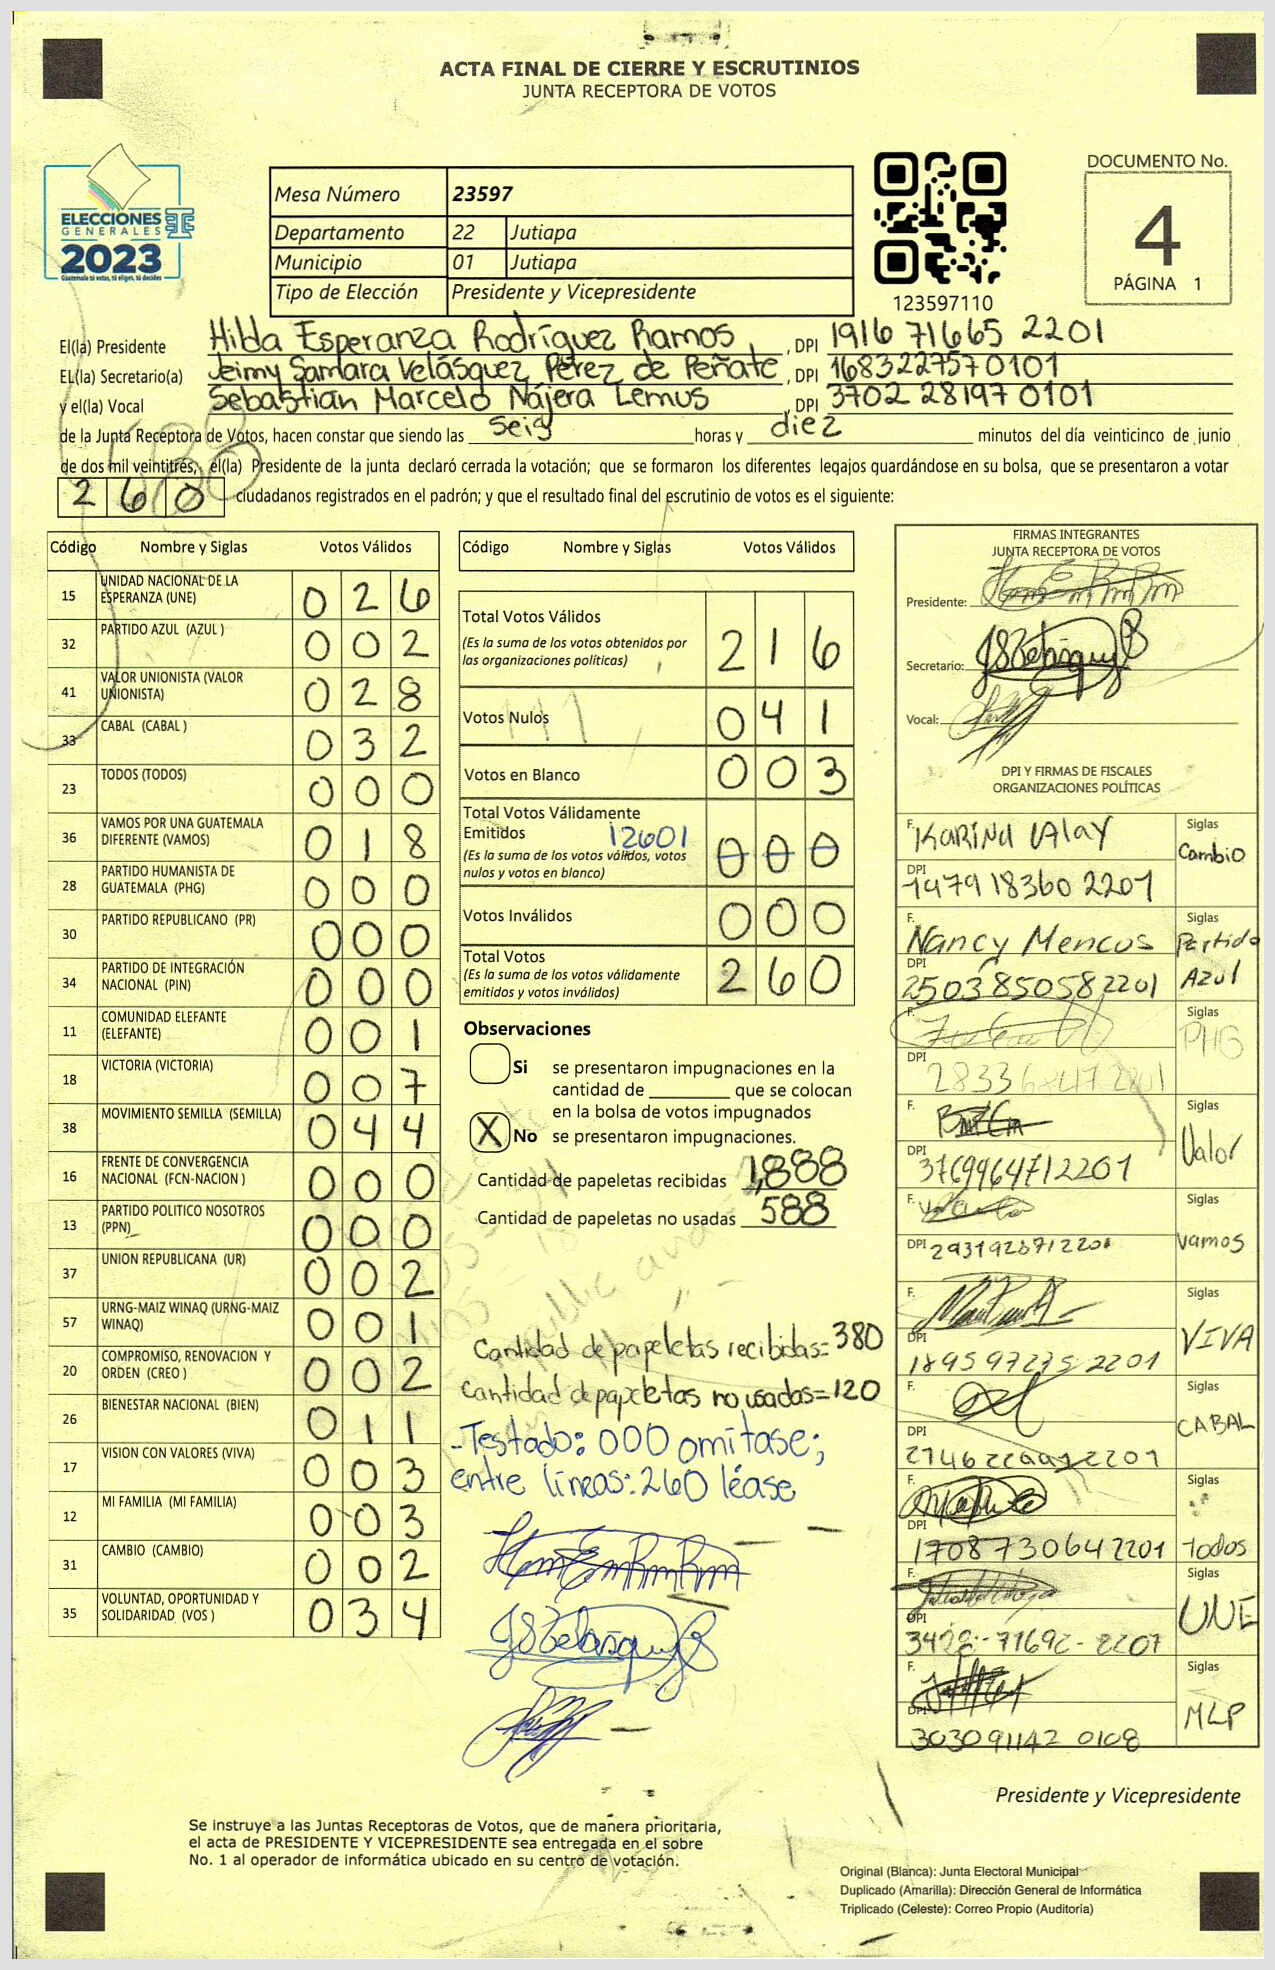 ACTA FINAL DE CIERRE Y ESCRUTINIOS
JUNTA RECEPTORA DE VOTOS
ELECCIONES
GENERALES
2023
Guatemala tú votas, tú eliges, tú decides
Mesa Número 23597
Departamento 22 Jutiapa
Municipio 01 Jutiapa
Tipo de Elección Presidente y Vicepresidente
123597110
DOCUMENTO No.
4
PÁGINA 1
El(la) Presidente Hilda Esperanza Rodríguez Ramos, DPI 1916 71665 2201
EL(la) Secretario(a) Jeimy Samara Velásquez Pérez de Peñate, DPI 1683227570101
y el(la) Vocal Sebastian Marcelo Nájera Lemus, DPI 3702 28197 0101
de la Junta Receptora de Votos, hacen constar que siendo las seis horas y diez minutos del día veinticinco de junio
de dos mil veintitrés, el(la) Presidente de la junta declaró cerrada la votación; que se formaron los diferentes legajos guardándose en su bolsa, que se presentaron a votar
260 ciudadanos registrados en el padrón; y que el resultado final del escrutinio de votos es el siguiente:
Código Nombre y Siglas Votos Válidos
15 UNIDAD NACIONAL DE LA ESPERANZA (UNE) 026
32 PARTIDO AZUL (AZUL ) 002
41 VALOR UNIONISTA (VALOR UNIONISTA) 028
33 CABAL (CABAL ) 032
23 TODOS (TODOS) 000
36 VAMOS POR UNA GUATEMALA DIFERENTE (VAMOS) 018
28 PARTIDO HUMANISTA DE GUATEMALA (PHG) 000
30 PARTIDO REPUBLICANO (PR) 000
34 PARTIDO DE INTEGRACIÓN NACIONAL (PIN) 000
11 COMUNIDAD ELEFANTE (ELEFANTE) 001
18 VICTORIA (VICTORIA) 007
38 MOVIMIENTO SEMILLA (SEMILLA) 044
16 FRENTE DE CONVERGENCIA NACIONAL (FCN-NACION ) 000
13 PARTIDO POLITICO NOSOTROS (PPN) 000
37 UNION REPUBLICANA (UR) 002
57 URNG-MAIZ WINAQ (URNG-MAIZ WINAQ) 001
20 COMPROMISO, RENOVACION Y ORDEN (CREO ) 002
26 BIENESTAR NACIONAL (BIEN) 011
17 VISION CON VALORES (VIVA) 003
12 MI FAMILIA (MI FAMILIA) 003
31 CAMBIO (CAMBIO) 002
35 VOLUNTAD, OPORTUNIDAD Y SOLIDARIDAD (VOS ) 034
Código Nombre y Siglas Votos Válidos
Total Votos Válidos 216
(Es la suma de los votos obtenidos por
las organizaciones políticas)
Votos Nulos 041
Votos en Blanco 003
Total Votos Válidamente
Emitidos 12601 000
(Es la suma de los votos válidos, votos
nulos y votos en blanco)
Votos Inválidos 000
Total Votos 260
(Es la suma de los votos válidamente
emitidos y votos inválidos)
Observaciones
Si se presentaron impugnaciones en la
cantidad de ________ que se colocan
en la bolsa de votos impugnados
X No se presentaron impugnaciones.
Cantidad de papeletas recibidas 1,888
Cantidad de papeletas no usadas 588
Cantidad de papeletas recibidas=380
Cantidad de papeletas no usadas=120
-Testado: 000 omítase;
entre líneas: 260 léase
FIRMAS INTEGRANTES
JUNTA RECEPTORA DE VOTOS
Presidente:
Secretario:
Vocal:
DPI Y FIRMAS DE FISCALES
ORGANIZACIONES POLÍTICAS
F. Karina Alay Siglas Cambio
DPI 1479 18360 2201
F. Nancy Mencos Siglas Partido Azul
DPI 2503850582201
F. Siglas PHG
DPI
F. Siglas Valor
DPI 3769964712201
F. Siglas Vamos
DPI 2931928712201
F. Siglas VIVA
DPI 1895972752201
F. Siglas CABAL
DPI
F. Siglas Todos
DPI 1708730642201
F. Siglas UNE
DPI 3428-71692-2207
F. Siglas MLP
DPI 303091142 0108
Presidente y Vicepresidente
Se instruye a las Juntas Receptoras de Votos, que de manera prioritaria,
el acta de PRESIDENTE Y VICEPRESIDENTE sea entregada en el sobre
No. 1 al operador de informática ubicado en su centro de votación.
Original (Blanca): Junta Electoral Municipal
Duplicado (Amarilla): Dirección General de Informática
Triplicado (Celeste): Correo Propio (Auditoría)